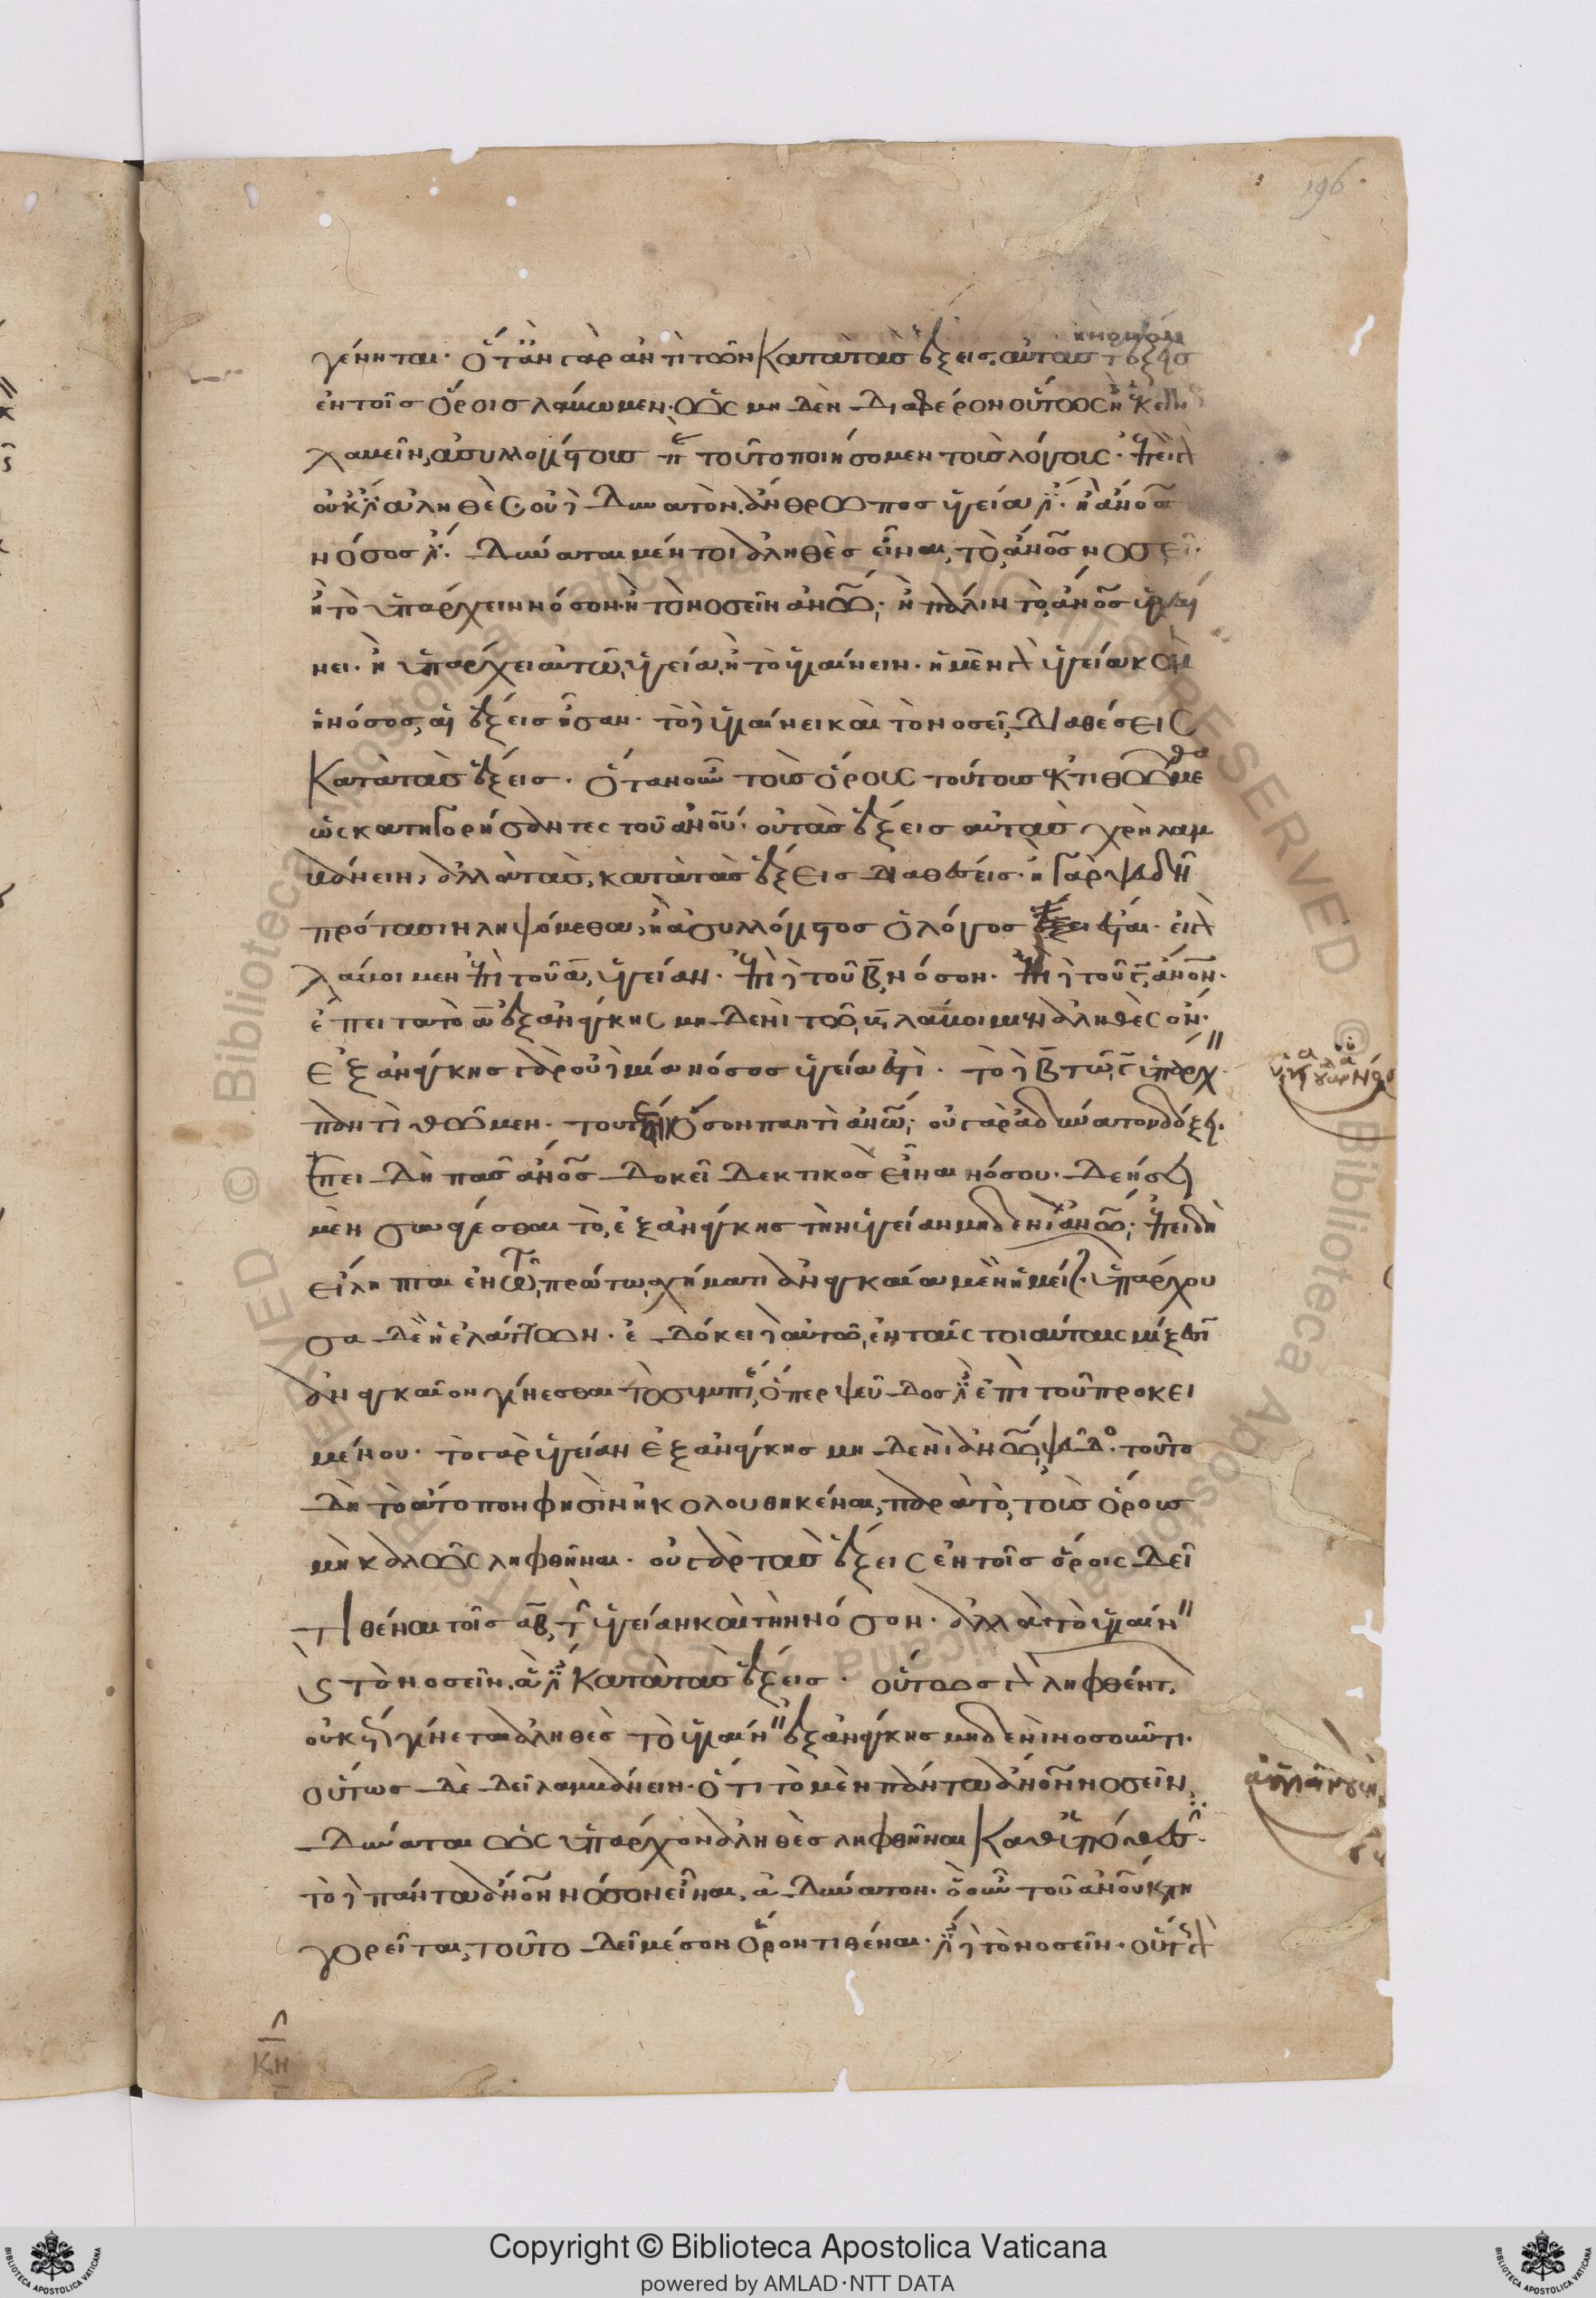 196
γένηται· ὅταν γὰρ ἀντὶ τῶν κατὰ τὰς ἕξεις, αὐτὰς τὰς ἕξεις
ἐν τοῖς ὅροις λάβωμεν· ὡς μηδὲν διαφέρον οὕτως ἢ ἐκείνως
λαβεῖν, ἀσυλλογίστους τοῦτο ποιήσομεν τοὺς λόγους· ἐπεὶ
οὐκ ἔστιν ἀληθὲς οὐδὲ δυνατὸν, ἄνθρωπος ὑγεία ἐστίν· ἢ ἄνος
νόσος ἐστί· δύναται μέντοι ἀληθὲς εἶναι, τὸ ἄνος νοσεῖ·
ἢ τὸ ὑπάρχειν νόσον· ἢ τὸ νοσεῖν ἀνῳ· ἢ πάλιν τὸ, ἄνος ὑγιαί
νει· ἢ ὑπάρχει αὐτῷ ὑγεία, ἢ τὸ ὑγιαίνειν· ἡ μὲν γὰρ ὑγεία καὶ
ἡ νόσος, αἱ ἕξεις ἦσαν· τὸ δὲ ὑγιαίνει καὶ τὸ νοσεῖ, διαθέσεις
κατὰ τὰς ἕξεις· ὅταν οὖν τοὺς ὅρους τούτους ἐκτιθώμεθα
ὡς κατηγορήσαντες τοῦ ἀνου· οὐ τὰς ἕξεις αὐτὰς χρὴ λαμ
βάνειν, ἀλλὰ τὰς κατὰ τὰς ἕξεις διαθέσεις· ἢ γὰρ ψευδῆ
πρότασιν ληψόμεθα, ἢ ἀσυλλόγιστος ὁ λόγος ἔσται· εἰ γὰρ
λάβοιμεν ἐπὶ τοῦ α, ὑγείαν· ἐπὶ δὲ τοῦ β, νόσον· ἐπὶ δὲ τοῦ γ, ἄνον·
ἔπειτα τὸ α ἐξ ἀνάγκης μηδενὶ τῷ β λάβοιμεν ἀληθὲς ὄν·
ἐξ ἀνάγκης γὰρ οὐδεμία νόσος ὑγεία ἐστί· τὸ δὲ β τῷ γ ὑπάρχειν
παντὶ θῶμεν· τουτέστι νόσον παντὶ ἀνῳ· οὐ γὰρ ἀδύνατον δόξει·
ἐπειδὴ πᾶς ἄνος δοκεῖ δεκτικὸς εἶναι νόσου· δεήσει
μὲν συνάγεσθαι τὸ, ἐξ ἀνάγκης τὴν ὑγείαν μηδενὶ ἀνῳ· ἐπειδὴ
εἴληπται ἐν τῷ πρώτῳ σχήματι ἀναγκαία μὲν ἡ μείζων· ὑπάρχου
σα δὲ ἡ ἐλάττων· ἐδόκει δὲ αὐτῷ ἐν ταῖς τοιαύταις μίξεσιν
ἀναγκαῖον γίνεσθαι τὸ συμπέρασμα, ὅπερ ψεῦδος ἐστὶν ἐπὶ τοῦ προκει
μένου· τὸ γὰρ ὑγείαν ἐξ ἀνάγκης μηδενὶ ἀνῳ, ψεῦδος· τοῦτο
δὴ τὸ ἄτοπον φησὶν ἠκολουθηκέναι, παρὰ τὸ, τοὺς ὅρους
μὴ καλῶς ληφθῆναι· οὐ γὰρ τὰς ἕξεις ἐν τοῖς ὅροις δεῖ
τιθέναι τοῖς αβ, τὴν ὑγείαν καὶ τὴν νόσον· ἀλλὰ τὸ ὑγιαίνειν
καὶ τὸ νοσεῖν, ἅ ἐστι κατὰ τὰς ἕξεις· οὕτως γὰρ ληφθέντων
οὐκέτι γίνεται ἀληθὲς τὸ ὑγιαίνειν ἐξ ἀνάγκης μηδενὶ νοσοῦντι·
οὕτως δὲ δεῖ λαμβάνειν· ὅτι τὸ μὲν πάντα ἄνον νοσεῖν,
δύναται ὡς ὑπάρχον ἀληθὲς ληφθῆναι καθ' ὑπόθεσιν·
τὸ δὲ πάντα ἄνον νόσον εἶναι, ἀδύνατον· ὃ οὖν τοῦ ἀνου κατη
γορεῖται, τοῦτο δεῖ μέσον ὅρον τιθέναι· ἔστι δὲ τὸ νοσεῖν· οὕτω γὰρ
κη